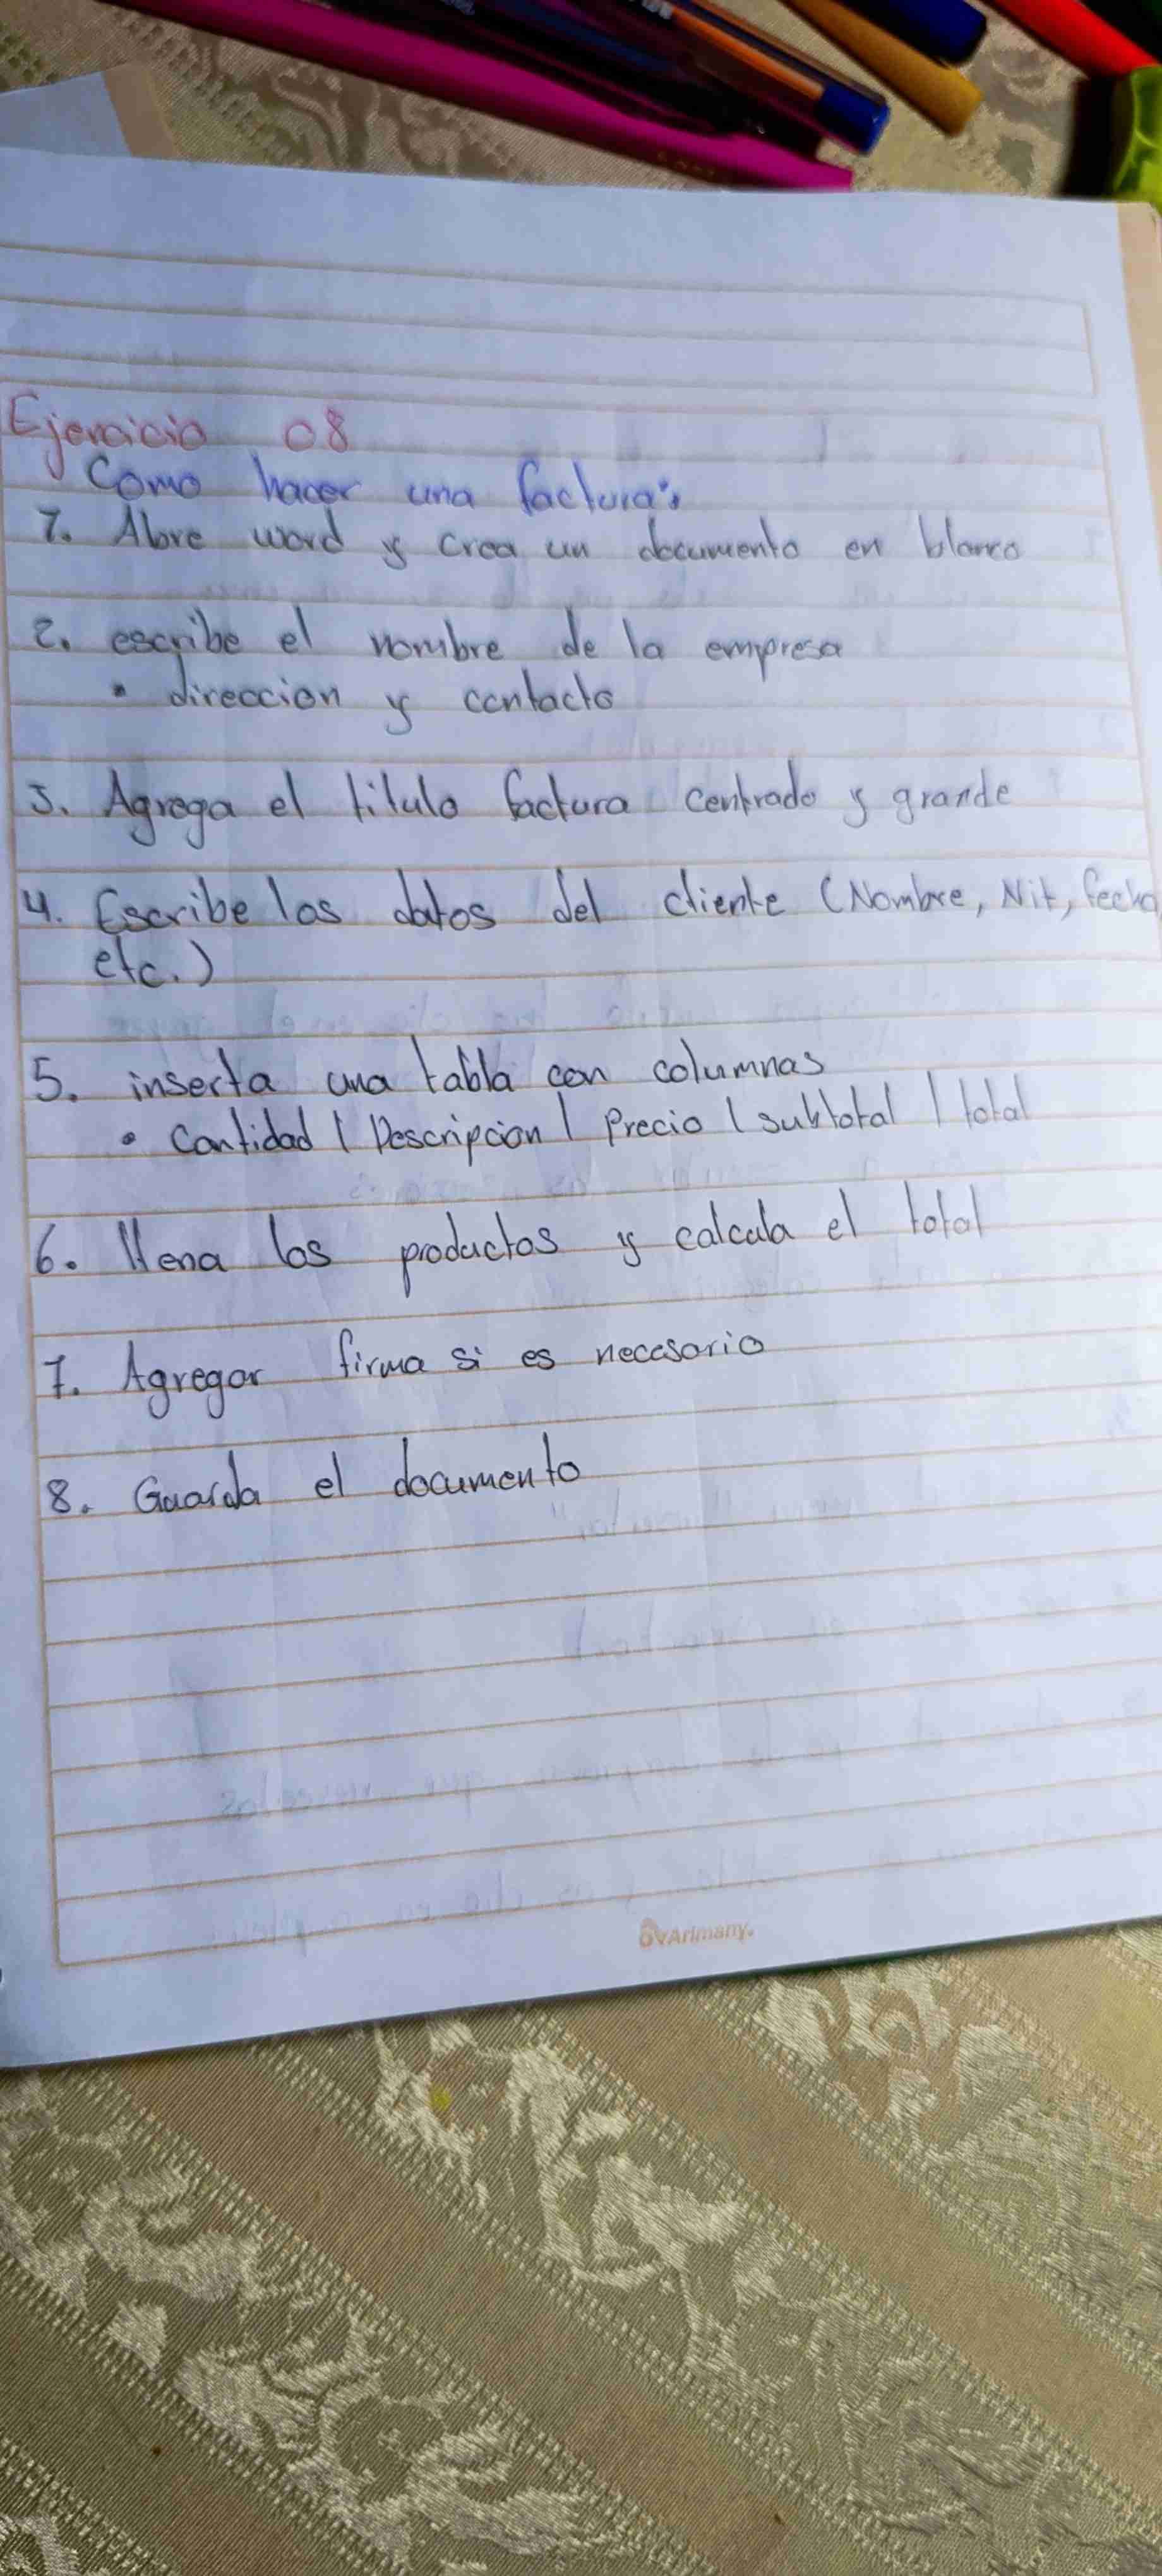 Ejercicio 08
Como hacer una factura:
1. Abre word y crea un documento en blanco
2. escribe el nombre de la empresa
• direccion y contacto
3. Agrega el titulo factura centrado y grande
4. Escribe los datos del cliente (Nombre, Nit, fecha,
etc.)
5. inserta una tabla con columnas
• Cantidad | Descripcion | Precio | subtotal | total
6. llena los productos y calcula el total
7. Agregar firma si es necesario
8. Guarda el documento
Arimany.